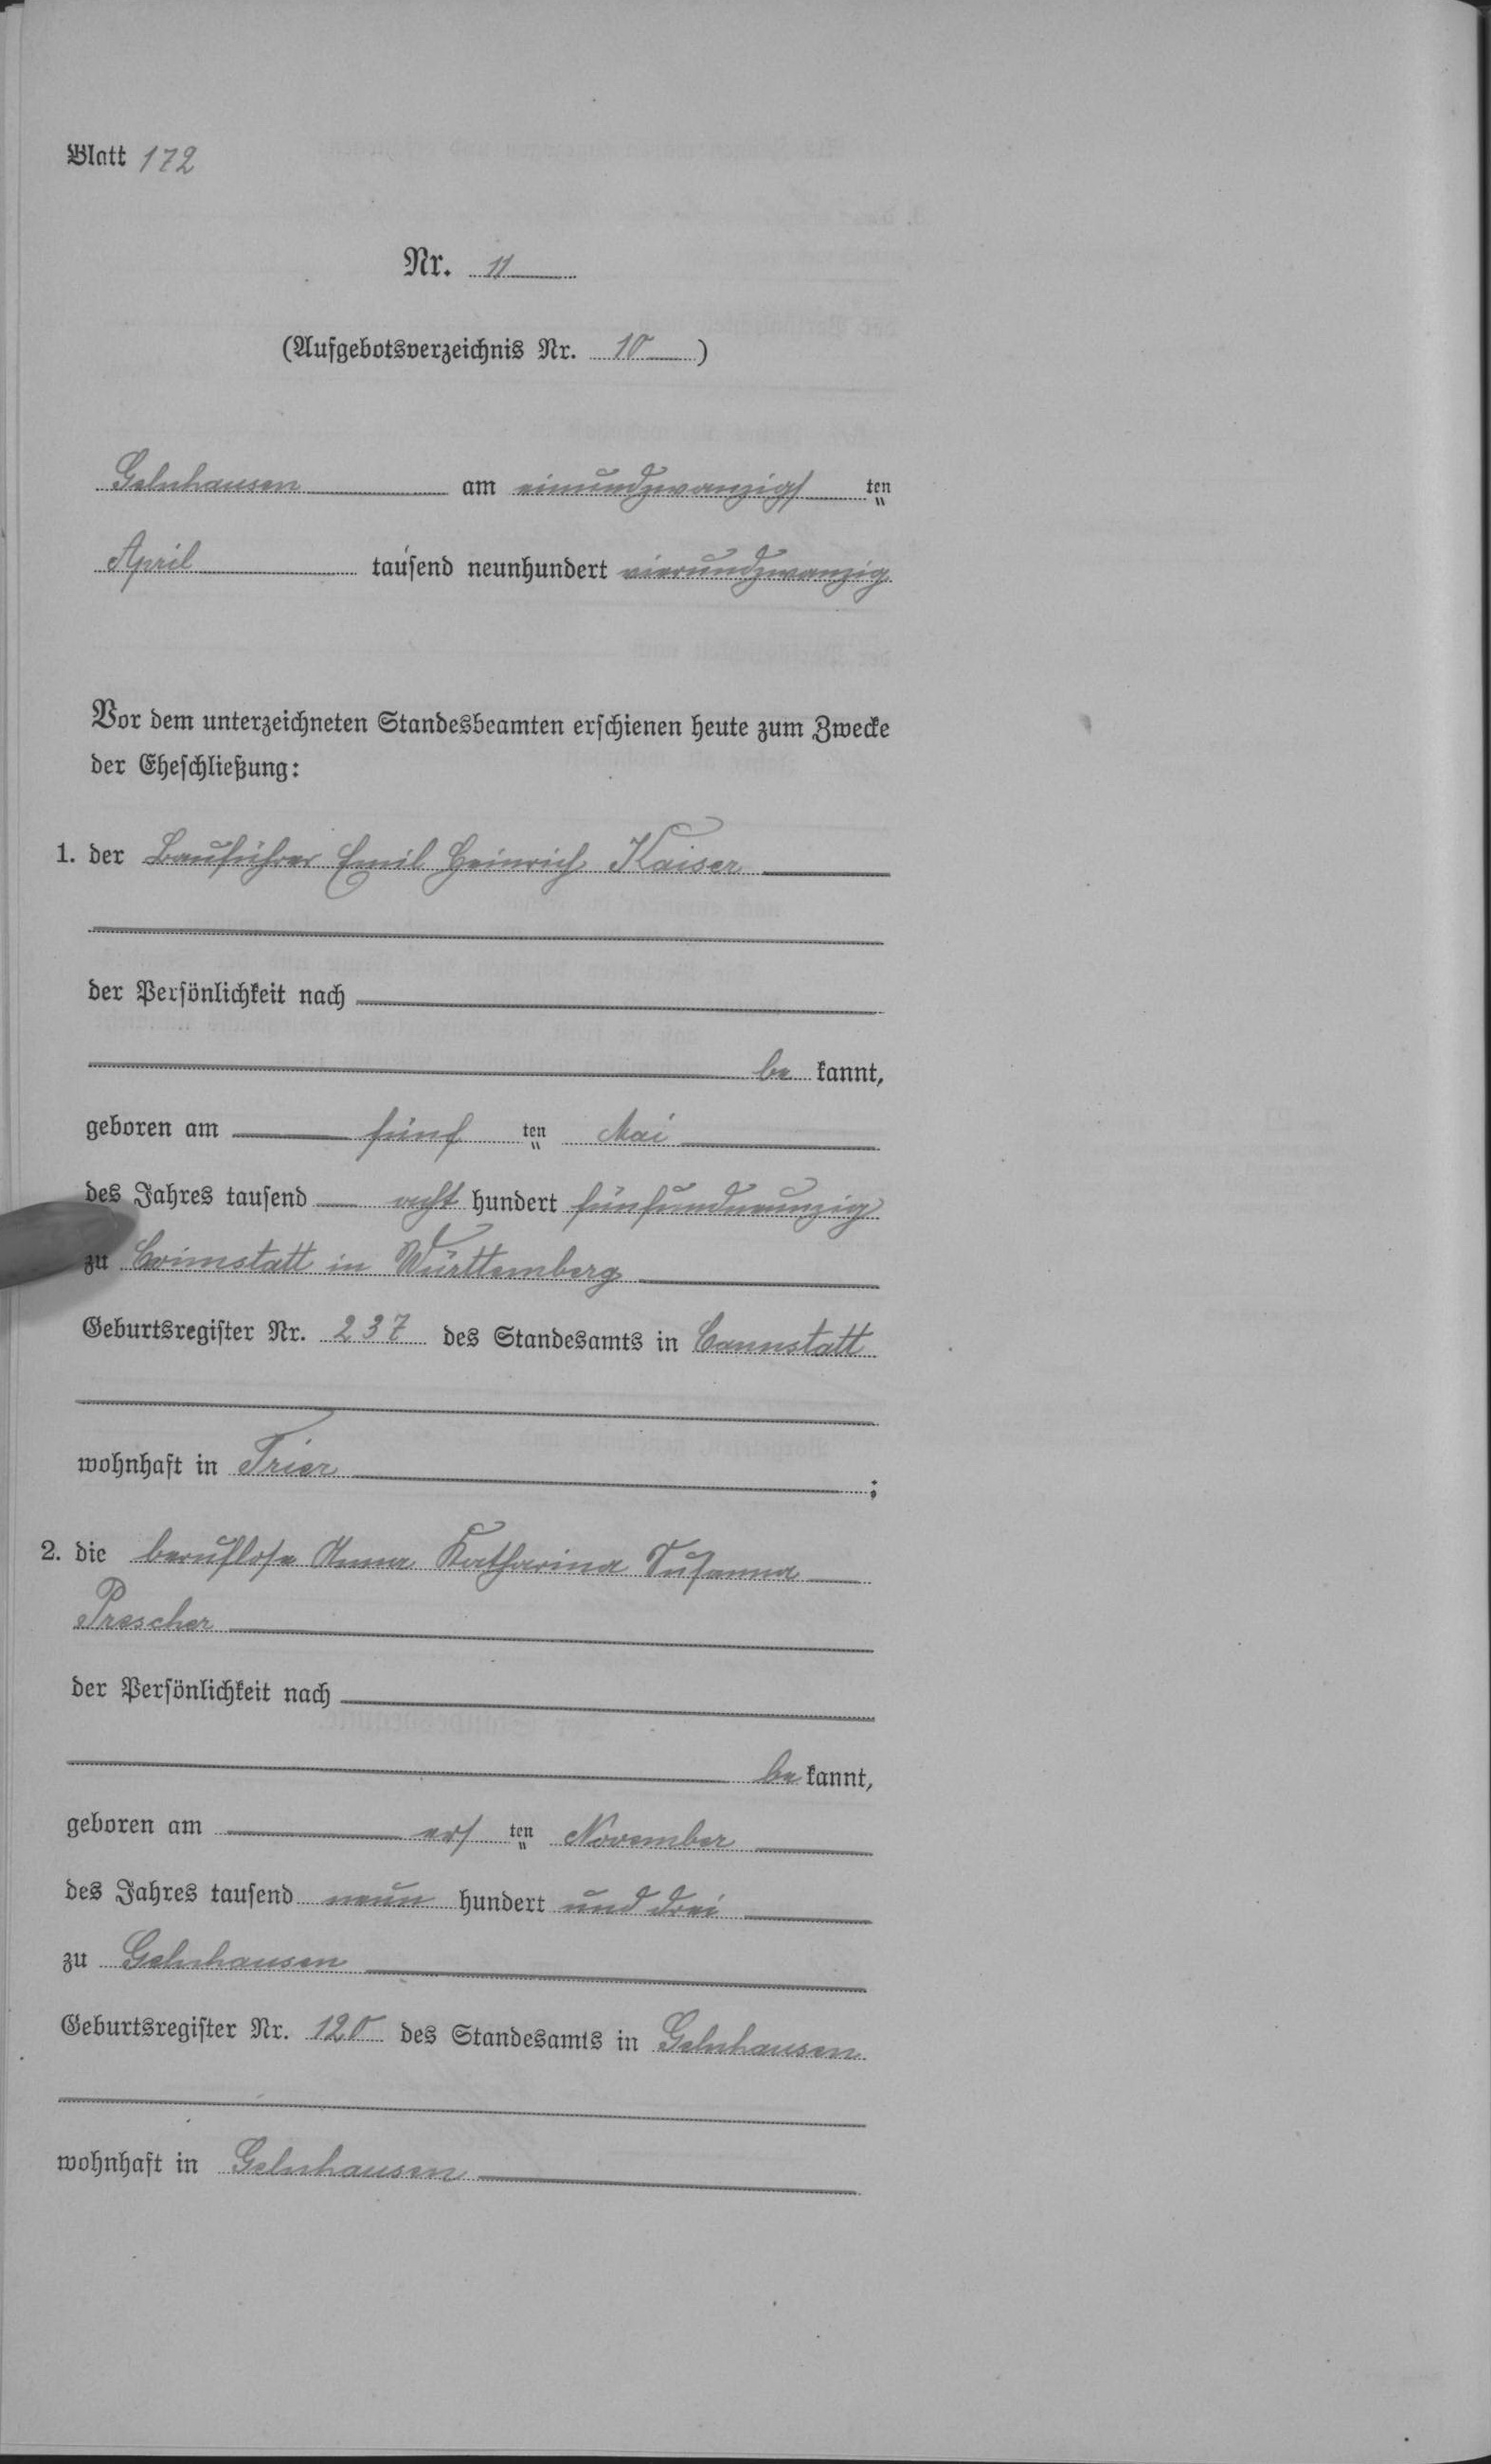 Blatt 172
Nr. 11
(Aufgebotsverzeichnis Nr. 10)
Gelnhausen am einundzwanzigs ten
April tausend neunhundert vierundzwanzig
Vor dem unterzeichneten Standesbeamten erschienen heute zum Zwecke
der Eheschließung:
1. der Bauführer Emil Heinrich Kaiser
der Persönlichkeit nach
be kannt,
geboren am fünf ten Mai
des Jahres tausend acht hundert fünfundneunzig
zu in Württemberg
Geburtsregister Nr. 237 des Standesamts in Cannstatt
wohnhaft in Trier ;
2. die berufslose Anna Katharina Susanna
Prescher
der Persönlichkeit nach
be kannt,
geboren am ers ten November
des Jahres tausend neun hundert und drei
zu Gelnhausen
Geburtsregister Nr. 120 des Standesamts in Gelnhausen
wohnhaft in Gelnhausen